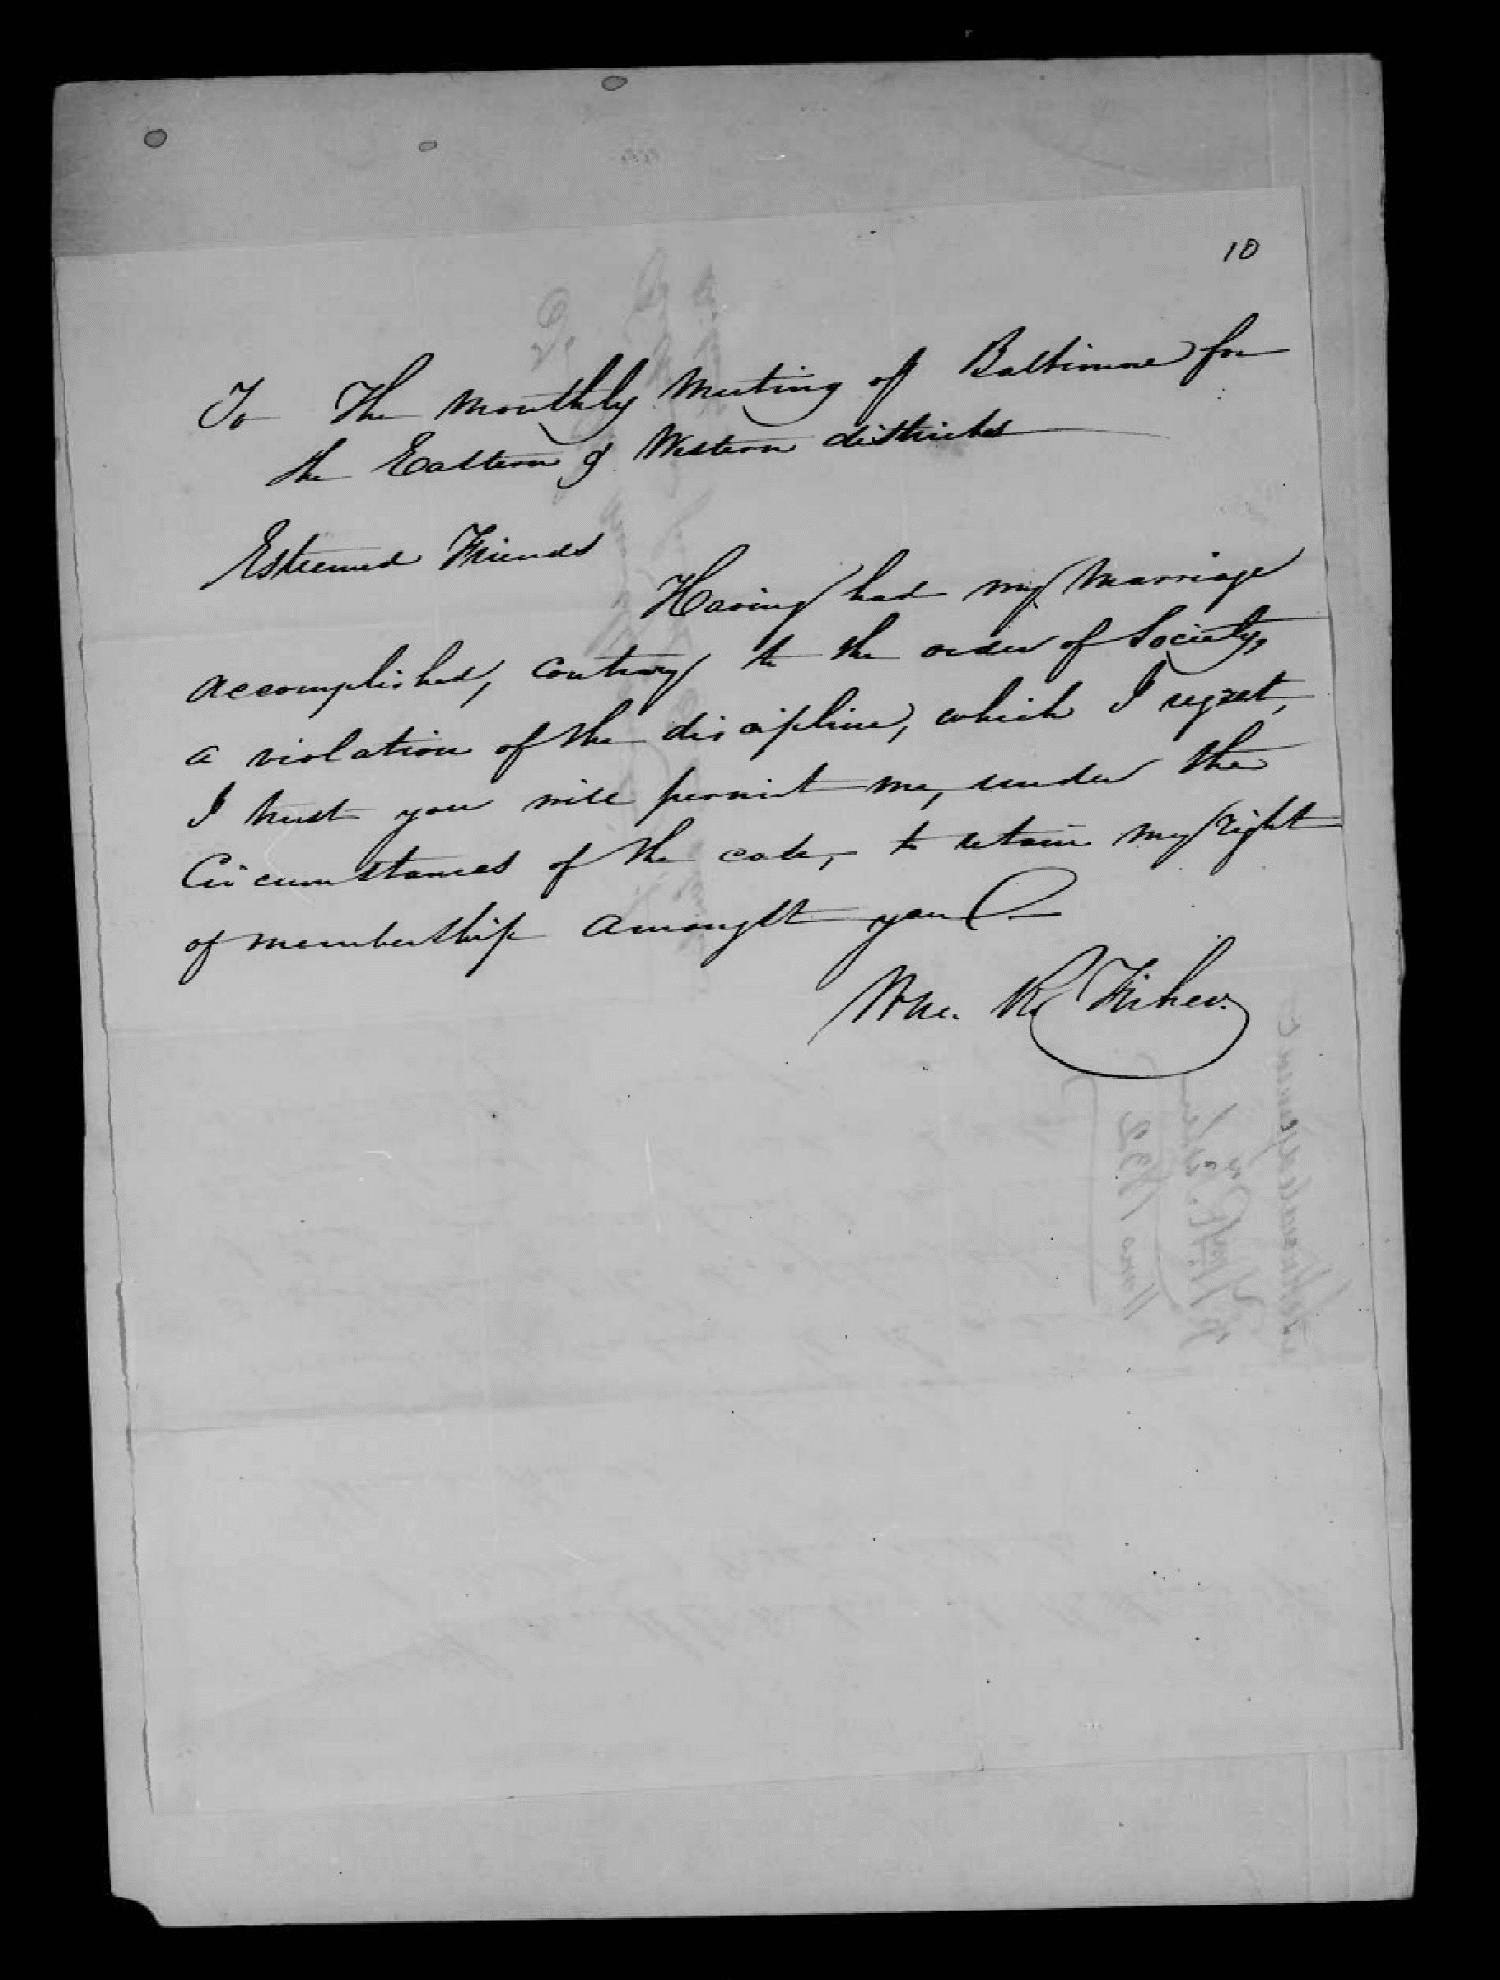 10
To The Monthly Meeting of Baltimore for
the Eastern & Western districts
Esteemed Friends
Having had my Marriage
accomplished, contrary to the order of Society,
a violation of the discipline, which I regret,
I trust you will permit me, under the
Circumstances of the case, to retain my right
of membership amongst you
Wm. R. Fisher.
1832